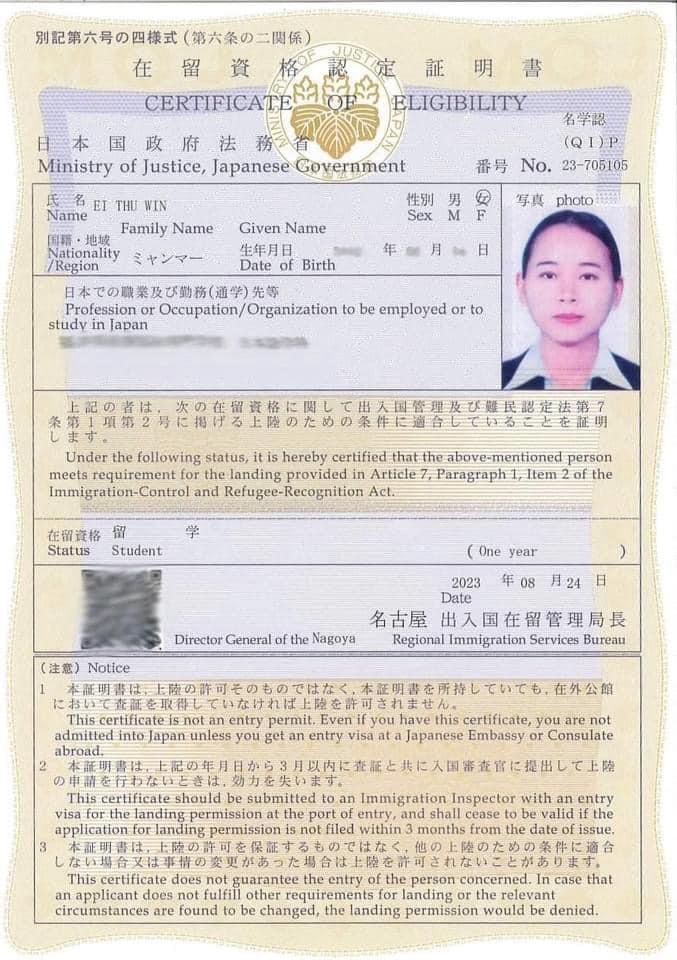 別記第六号の四様式(第六条の二関係)
在留資格認定証明書
CERTIFICATE OF ELIGIBILITY
MINISTRY OF JUSTICE JAPAN
名学認
日本国政府法務省
(QI)P
Ministry of Justice, Japanese Government
番号 No. 23-705105
氏名 EI THU WIN
性別 男 女
写真 photo
Name
Sex M F
Family Name Given Name
国籍・地域
生年月日 年 月 日
Nationality ミャンマー
/Region
Date of Birth
日本での職業及び勤務(通学)先等
Profession or Occupation/Organization to be employed or to
study in Japan
上記の者は,次の在留資格に関して出入国管理及び難民認定法第7
条第1項第2号に掲げる上陸のための条件に適合していることを証明
します。
Under the following status, it is hereby certified that the above-mentioned person
meets requirement for the landing provided in Article 7, Paragraph 1, Item 2 of the
Immigration-Control and Refugee-Recognition Act.
在留資格 留 学
Status Student
( One year )
2023 年 08 月 24 日
Date
名古屋 出入国在留管理局長
Director General of the Nagoya Regional Immigration Services Bureau
(注意) Notice
1 本証明書は,上陸の許可そのものではなく,本証明書を所持していても,在外公館
において査証を取得していなければ上陸を許可されません。
This certificate is not an entry permit. Even if you have this certificate, you are not
admitted into Japan unless you get an entry visa at a Japanese Embassy or Consulate
abroad.
2 本証明書は,上記の年月日から3月以内に査証と共に入国審査官に提出して上陸
の申請を行わないときは,効力を失います。
This certificate should be submitted to an Immigration Inspector with an entry
visa for the landing permission at the port of entry, and shall cease to be valid if the
application for landing permission is not filed within 3 months from the date of issue.
3 本証明書は,上陸の許可を保証するものではなく,他の上陸のための条件に適合
しない場合又は事情の変更があった場合は上陸を許可されないことがあります。
This certificate does not guarantee the entry of the person concerned. In case that
an applicant does not fulfill other requirements for landing or the relevant
circumstances are found to be changed, the landing permission would be denied.